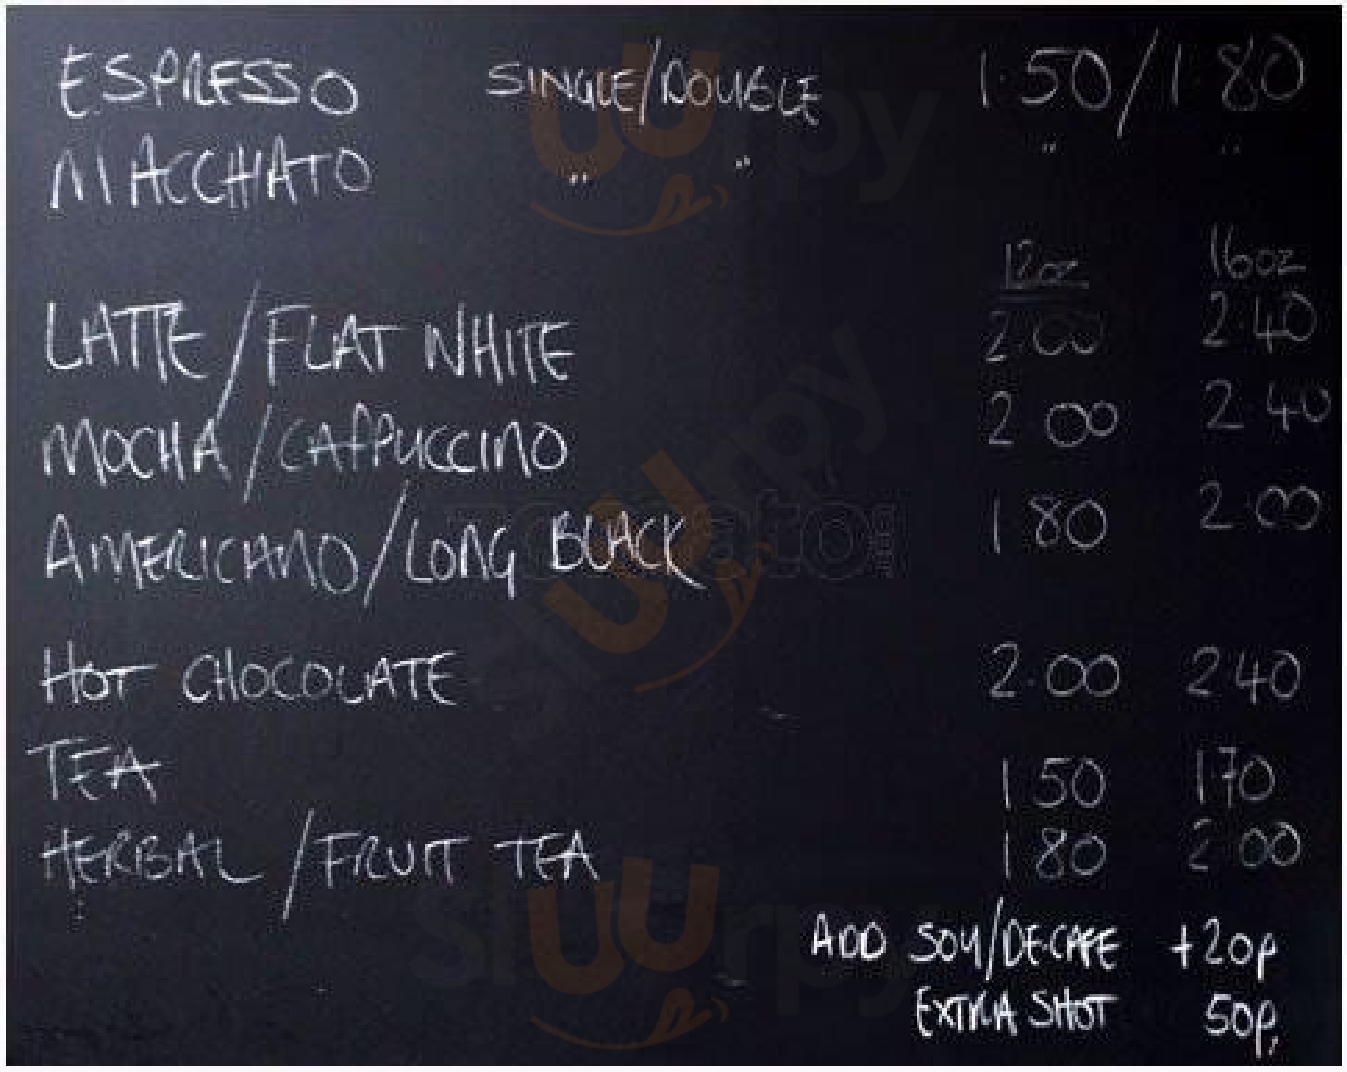 ESPRESSO SINGLE/DOUBLE 1.50/1.80
MACCHIATO " " " "
12oz 16oz
LATTE/FLAT WHITE 2.00 2.40
MOCHA/CAPPUCCINO 2 00 2.40
AMERICANO/LONG BLACK 1 80 2.00
HOT CHOCOLATE 2.00 2 40
TEA 1 50 1.70
HERBAL/FRUIT TEA 1 80 2 00
ADD SOY/DECAFE +20p
EXTRA SHOT 50p,
slUUrpy
slUUrpy
slUUrpy
zomato